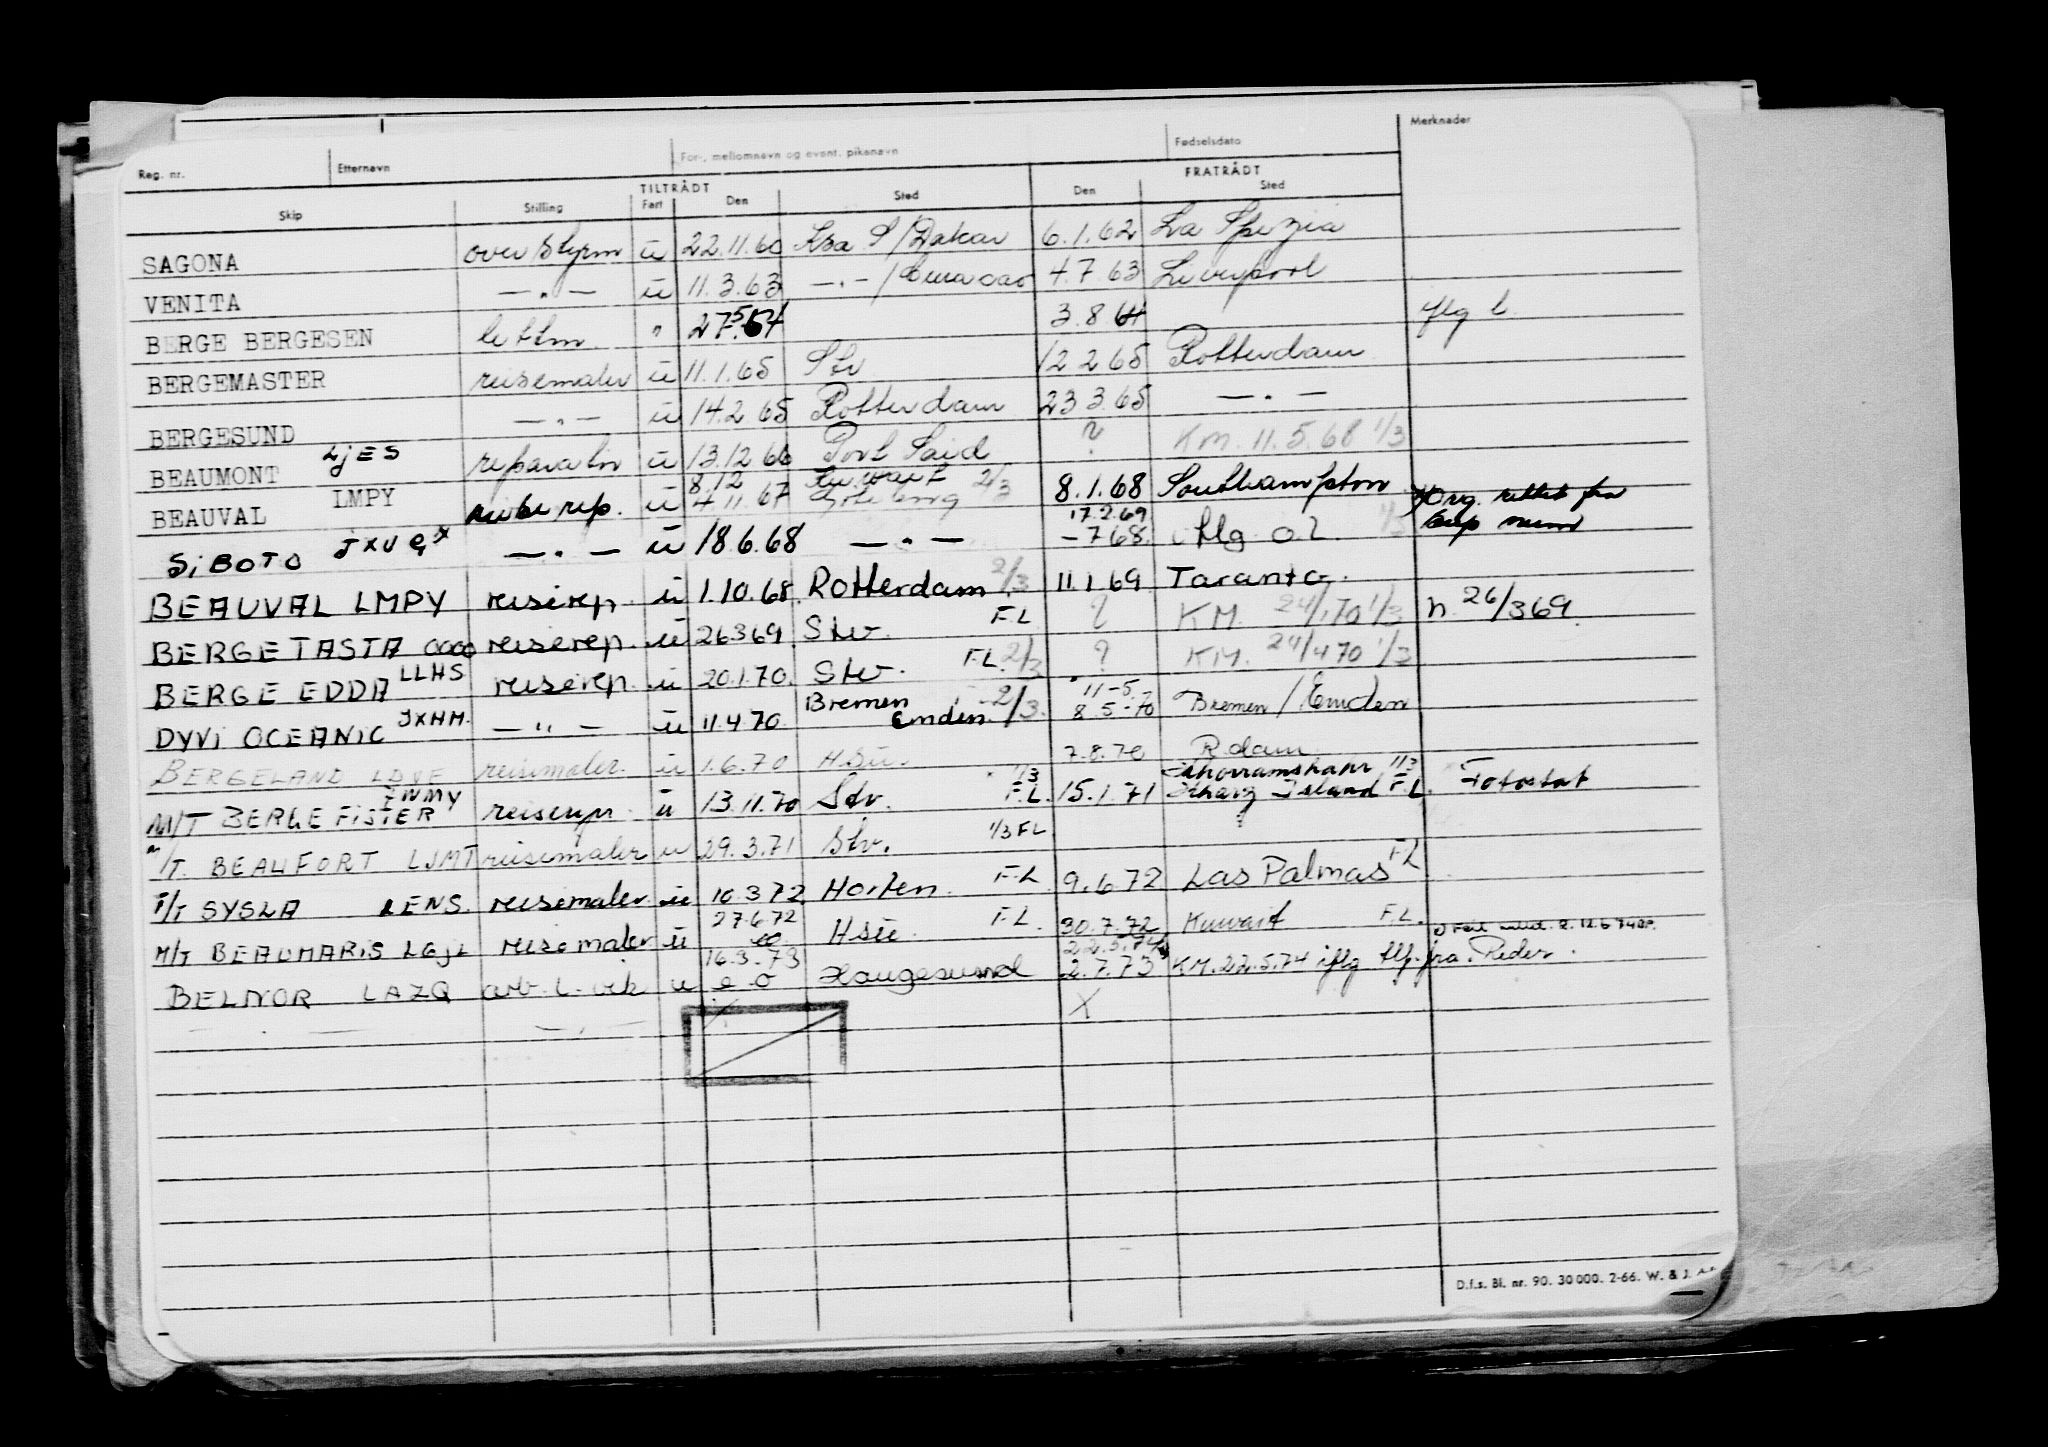 Reg. nr. Etternavn For-, mellomnavn og event. pikenavn Fødselsdato Merknader
TILTRÅDT FRATRÅDT
Skip Stilling Fart Den Sted Den Sted
SAGONA overstyrm u 22.11.60 Kra S/Dakar 6.1.62 La Spezia
VENITA —"— u 11.3.63 —"—/Curacao 4.7.63 Liverpool
BERGE BERGESEN lettm " 27.5.64 3.8.64 iflg b
BERGEMASTER reisemaler u 11.1.65 Stv 12 2 65 Rotterdam
BERGESUND —"— u 14.2.65 Rotterdam 23 3.65 —"—
BEAUMONT LJES reparatør u 13.12 66 Port Said ? KM. 11.5.68 1/3
BEAUVAL LMPY reise rep. u 8.12 4.11.67 Kuwait Göteborg 2/3 8.1.68 Southampton
SIBOTO JXUQ x —"— u 18.6.68 —"— 17.2.69 – 7 68. iflg o.l. 1/3
BEAUVAL LMPY reiserep. u 1.10.68. Rotterdam 2/3 11.1.69 Taranto.
BERGETASTA reiserep. u 26369 Stv. F.L. ? KM. 24/1 70 1/3 n. 26/3 69.
BERGE EDDA LLHS reiserep. u 20.1.70. Stv. F.L. 2/3 ? KM. 24/4 70 1/3
DYVI OCEANIC JXHM. —"— u 11.4.70 Bremen Emden. 2/3. 11-5. 8-5-70 Bremen/Emden
BERGELAND LDVF reisemaler. u 1.6.70 Hsu. 7.8.70 R.dam
M/T BERGE FISTER reiserep. u 13.11.70 Stv. 1/3 F.L. 15.1.71 Khorramshahr 1/3 Kharg Island F.L. Fotostat
M/T. BEAUFORT LJMT reisemaler u 29.3.71 Stv. 1/3 FL ?
T/T SYSLA LENS. reisemaler. u 16.3 72 Horten. F.L. 9.6 72 Las Palmas FL
M/T BEAUMARIS LGJL reisemaler u 27.6.72 Hsu. F.L. 30.7.72 Kuwait F.L.
BELNOR LAZQ arb.l.vik u 16.3.73 Haugesund 22.5.74 2.7.73 KM.22.5.74 iflg tlf. fra. Reder.
— — —"— X X
D.f.s. Bl. nr. 90. 30 000. 2-66. W. & J. A.